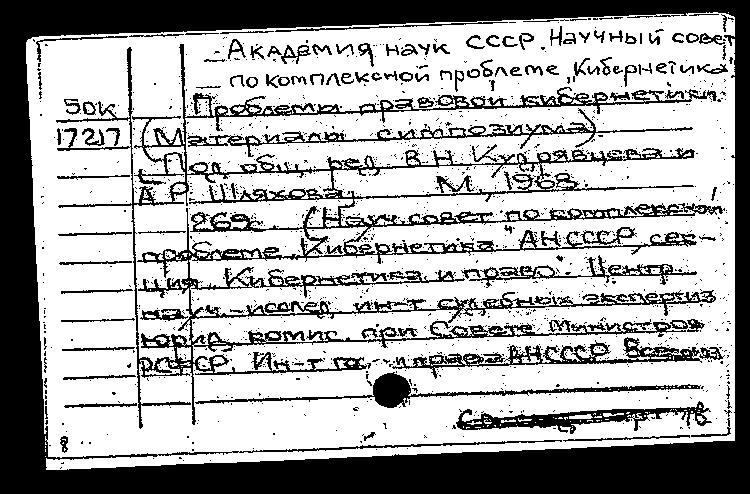 Академия наук СССР. Научный совет
по комплексной проблеме „Кибернетика“
50к Проблемы правовой кибернетики.
17217 (Материалы симпозиума).
[Под общ. ред. В.Н. Кудрявцева и
А.Р. Шляхова]. М., 1968.
269с. (Науч. совет по комплексной
проблеме „Кибернетика" АНСССР, сек-
ция „Кибернетика и право". Центр.
науч.-исслед. ин-т судебных экспертиз
юрид. комис. при Совете Министров
РСФСР. Ин-т гос. и права АНСССР
8